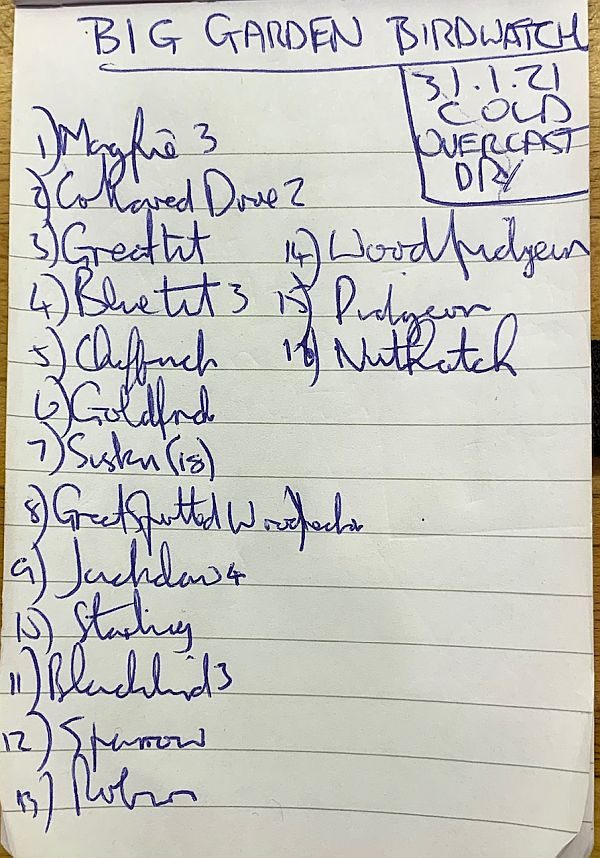 BIG GARDEN BIRDWATCH
31.1.21
COLD
OVERCAST
DRY
1) Magpie 3
2) Collared Dove 2
3) Great tit
4) Blue tit 3
5) Chaffinch
6) Goldfinch
7) Siskin (18)
8) Great Spotted Woodpecker
9) Jackdaw 4
10) Starling
11) Blackbird 3
12) Sparrow
13) Robin
14) Woodpidgeon
15) Pidgeon
16) Nuthatch